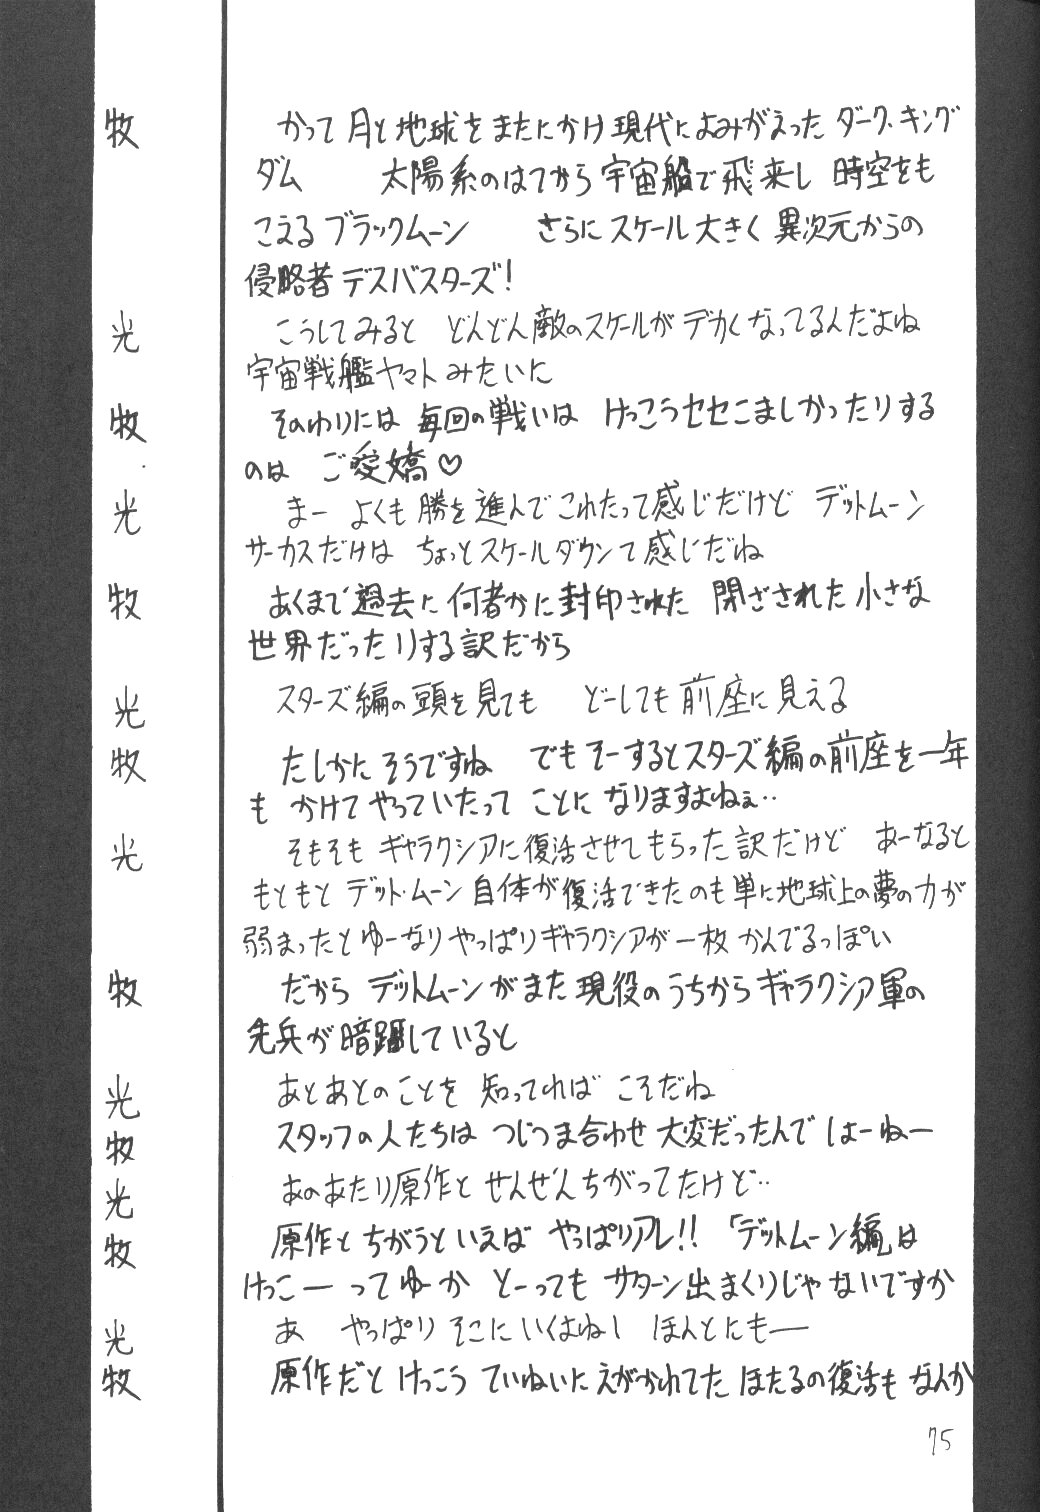 牧 かって月と地球をまたにかけ現代によみがえったダーク・キング
ダム 太陽系のはてから宇宙船で飛来し 時空をも
こえるブラックムーン さらにスケール大きく異次元からの
侵略者デスバスターズ!
光 こうしてみると どんどん敵のスケールがデカくなってるんだよね
宇宙戦艦ヤマトみたいに
牧 そのわりには 毎回の戦いは けっこうセセこましかったりする
のは ご愛嬌♡
光 まー よくも勝を進んでこれたって感じだけど デットムーン
サーカスだけは ちょっとスケールダウンて感じだね
牧 あくまで過去に何者かに封印された 閉ざされた小さな
世界だったりする訳だから
光 スターズ編の頭を見ても どーしても前座に見える
牧 たしかにそうですね でもそーするとスターズ編の前座を一年
も かけてやっていたって ことに なりますよねぇ‥
光 そもそも ギャラクシアに復活させてもらった訳だけど あーなると
もともと デット・ムーン自体が復活できたのも単に地球上の夢の力が
弱まったとゆーなりやっぱりギャラクシアが一枚かんでるっぽい
牧 だから デットムーンがまた現役のうちからギャラクシア軍の
先兵が暗躍していると
光 あとあとのことを 知ってれば こそだね
牧 スタッフの人たちは つじつま合わせ 大変だったんでしょーねー
光 あのあたり原作と ぜんぜんちがってたけど‥
牧 原作とちがうといえば やっぱりアレ!! 「デットムーン編」は
けっこーってゆーか とーってもサターン出まくりじゃないですか
光 あ やっぱり そこにいくはねし ほんとにもー
牧 原作だと けっこう ていねいにえがかれてた ほたるの復活も なんか
75